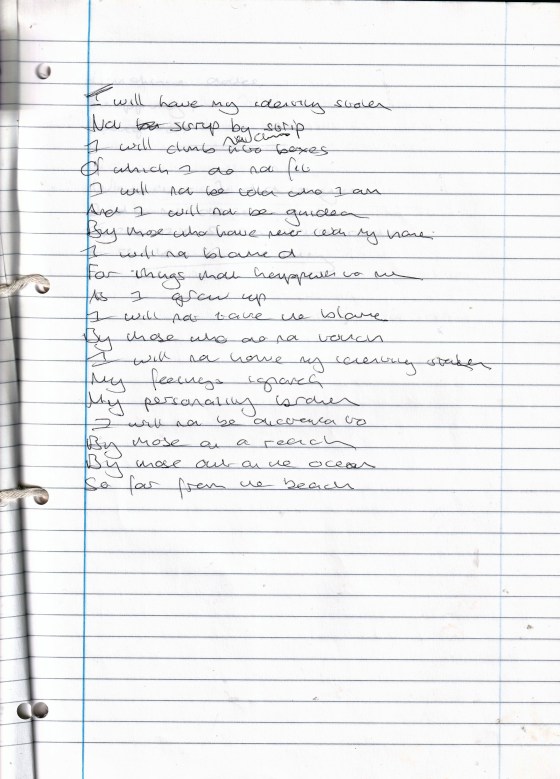 I will have my identity stolen
Not be strip by strip
I will climb into boxes
Of which I do not fit
I will not be told who I am
And I will not be guided
By those who have never been my name
I will not blamed
For things that happened to me
As I grew up
I will not take the blame
By those who do not
I will not have my identity stolen
My feelings ignored
My personality broken
I will not be dictated to
By those on a
By those out on the ocean
So far from the beach